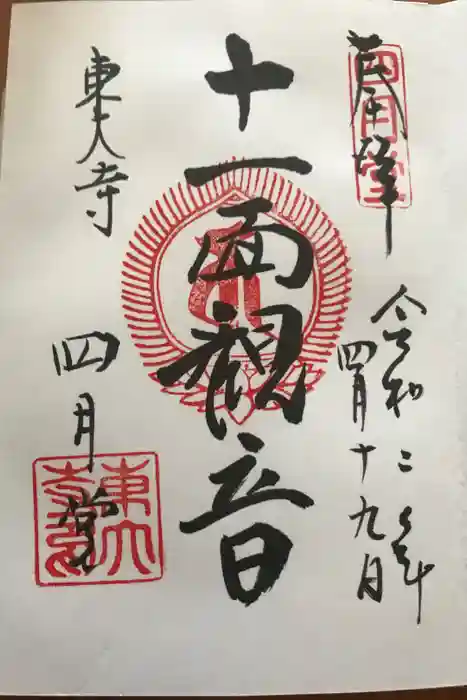 奉拝
四月堂
令和二年
四月十九日
十一面観音
東大寺
四月堂